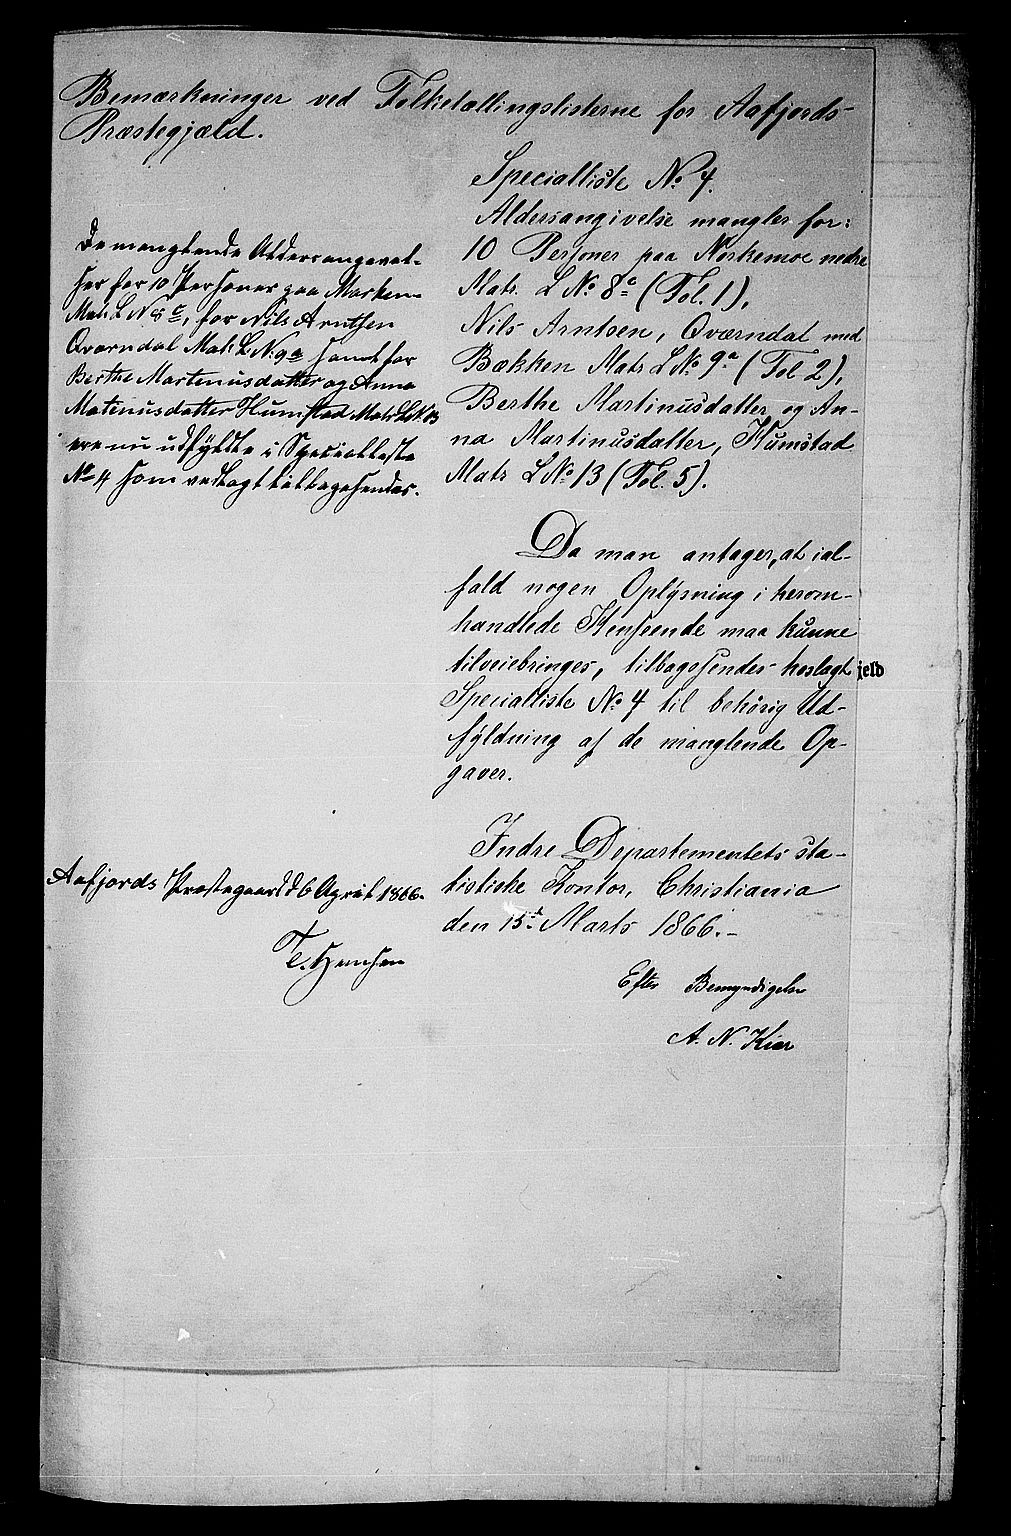 Bemærkninger ved Folketællingslisterne for Aafjords
Præstegjæld.
Specialliste No 4.
Aldersangivelse mangler for:
10 Personer paa Norkemoe nedre
Matr. L No 8a (Fol. 1),
Nils Arntsen, Qværndal med
Bækken Matr L No 9a (Fol 2),
Berthe Martinusdatter og An-
na Martinusdatter, Humstad
Matr L No 13 (Fol. 5).
Da man antager, at ial-
fald nogen Oplysning i herom-
handlede Henseende maa kunne
tilveiebringes, tilbagesendes hoslagt
Specialliste No 4 til behörig Ud-
fyldning af de manglende Op-
gaver.
Indre Departementets sta-
tistiske Kontor, Christiania
den 15de Marts 1866.-
Efter Bemyndigelse
A. N. Kiær
De manglende Aldersangivel-
ser for 10 Personer paa
Matr L N 8a, for Nils Arntsen
Qværndal Matr L N 9a samt for
Berthe Martinusdatter og Anna
Matinusdatter Humstad Matr L N 13
ere nu udfyldte i Specialliste
No 4 som vedlagt tilbagesendes.
Aafjords Præstegaard d 6 April 1866.
jeld